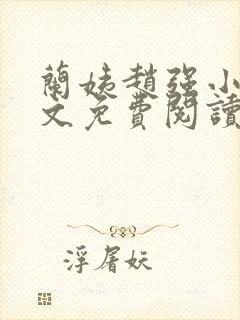 蘭姨趙强小
文免費閱讀
浮屠妖